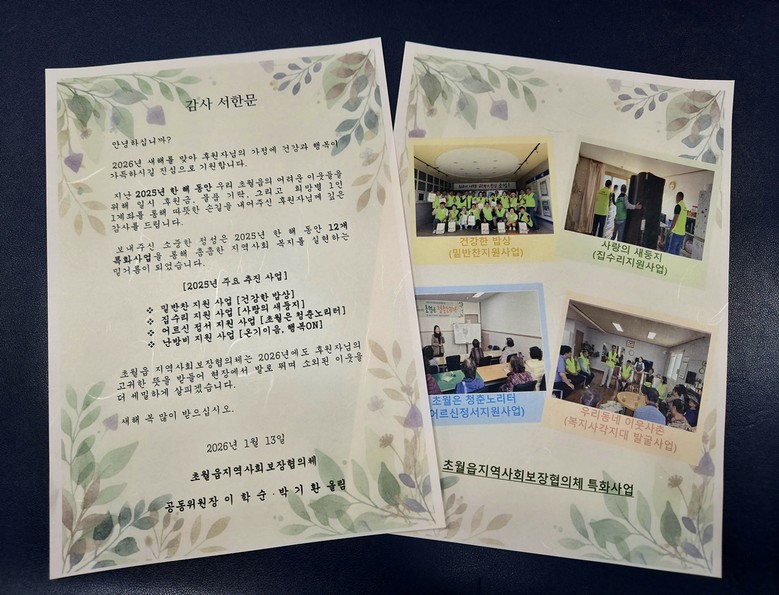 감사 서한문
안녕하십니까?
2026년 새해를 맞아 후원자님의 가정에 건강과 행복이
가득하시길 진심으로 기원합니다.
지난 2025년 한 해 동안 우리 초월읍의 어려운 이웃들을
위해 일시 후원금, 물품 기탁, 그리고 희망별 1인
1계좌를 통해 따뜻한 손길을 내어주신 후원자님께 깊은
감사를 드립니다.
보내주신 소중한 정성은 2025년 한 해 동안 12개
특화사업을 통해 촘촘한 지역사회 복지를 실현하는
밑거름이 되었습니다.
[2025년 주요 추진 사업]
❖ 밑반찬 지원 사업 [건강한 밥상]
❖ 집수리 지원 사업 [사랑의 새둥지]
❖ 어르신 정서 지원 사업 [초월은 청춘노리터]
❖ 난방비 지원 사업 [온기이음, 행복ON]
초월읍 지역사회보장협의체는 2026년에도 후원자님의
고귀한 뜻을 받들어 현장에서 발로 뛰며 소외된 이웃을
더 세밀하게 살피겠습니다.
새해 복 많이 받으십시오.
2026년 1월 13일
초월읍지역사회보장협의체
공동위원장 이 학 순 · 박 기 환 올림
건강한 밥상
(밑반찬지원사업)
사랑의 새둥지
(집수리지원사업)
초월은 청춘노리터
어르신정서지원사업)
우리동네 이웃사촌
(복지사각지대 발굴사업)
초월읍지역사회보장협의체 특화사업